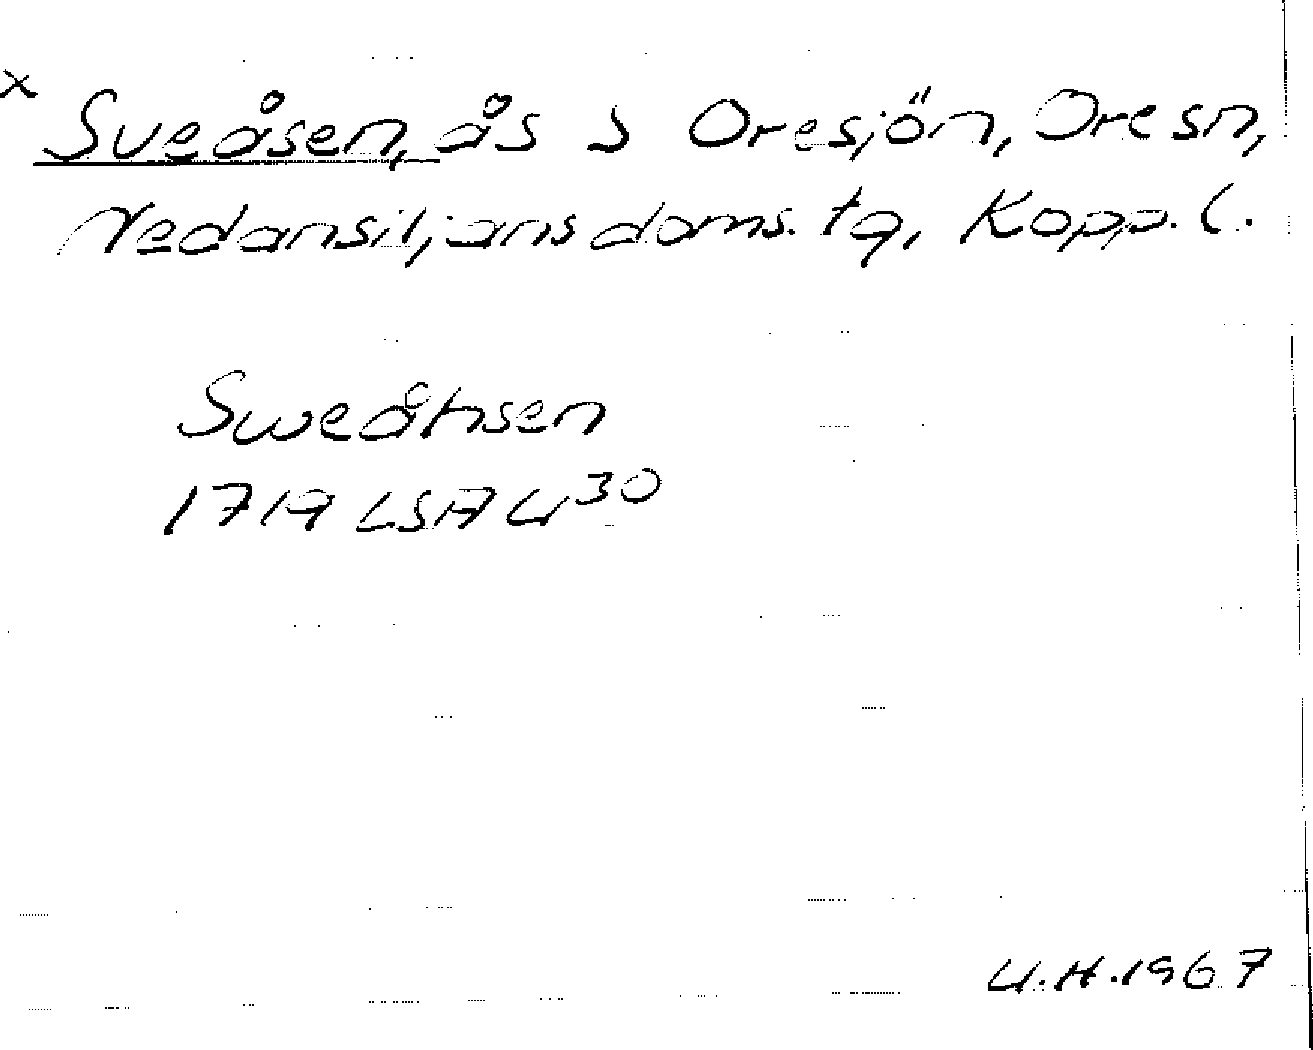 x Sveåsen, ås S Oresjön, Ore sn,
Nedansiljans doms. tg, Kopp. l.
Sweåhsen
1719 LSA U³⁰
U.H.1967